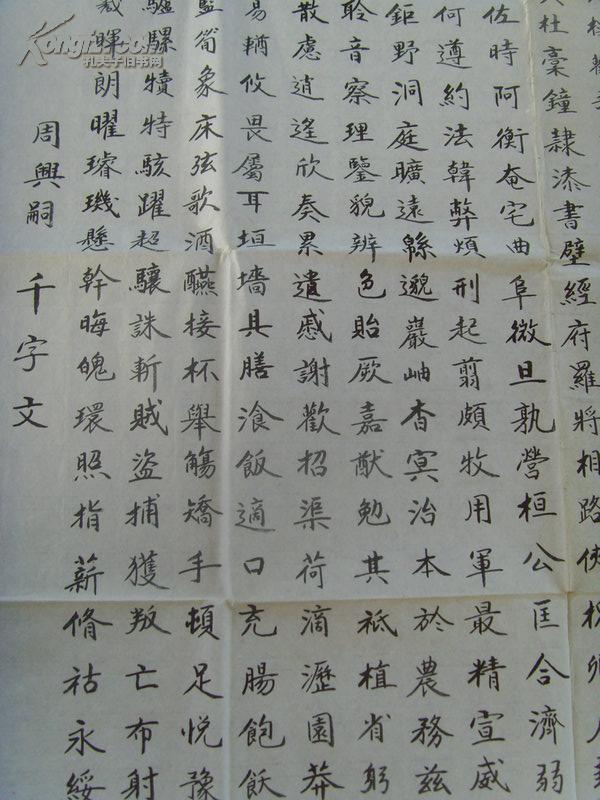 杜稾鐘隸漆書壁經府羅將相路俠槐卿
佐時阿衡奄宅曲阜微旦孰營桓公匡合濟弱
何遵約法韓弊煩刑起翦頗牧用軍最精宣威
鉅野洞庭曠遠緜邈巖岫杳冥治本於農務茲
聆音察理鑒貌辨色貽厥嘉猷勉其祗植省躬
散慮逍遙欣奏累遣慼謝歡招渠荷滴瀝園莽
易輶攸畏屬耳垣墻具膳飡飯適口充腸飽飫
筍象床弦歌酒醼接杯舉觴矯手頓足悅豫
驢騾犢特駭躍超驤誅斬賊盜捕獲叛亡布射
晖朗曜璿璣懸幹晦魄環照指薪脩祜永綏
周興嗣 千字文
Kongfz.com
孔夫子旧书网